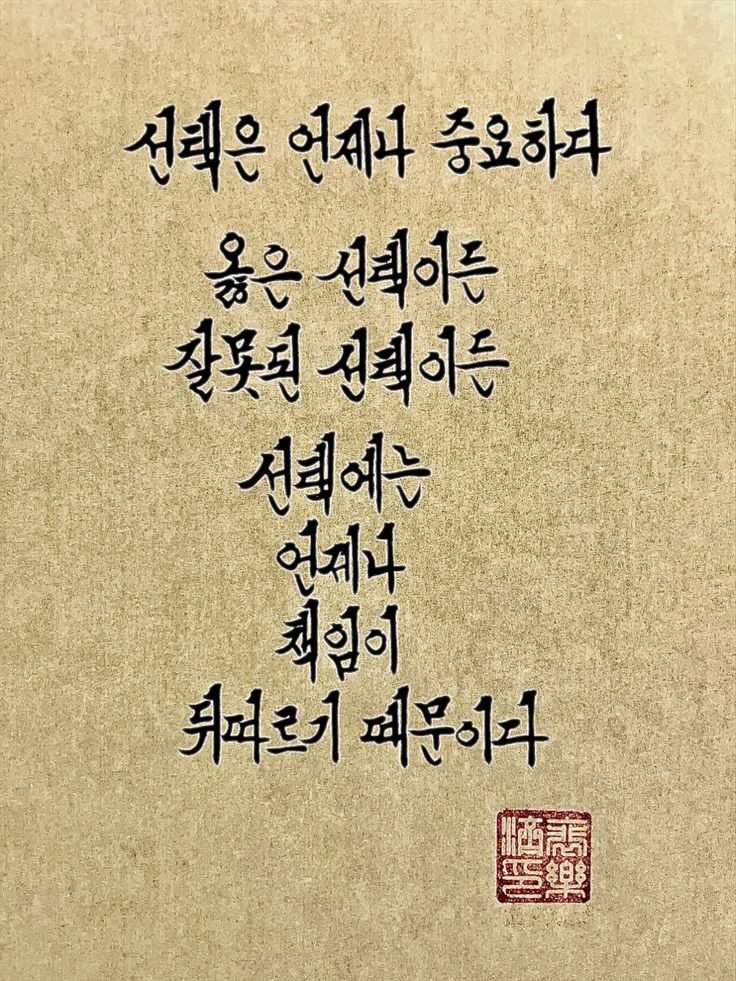 선택은 언제나 중요하다
옳은 선택이든
잘못된 선택이든
선택에는
언제나
책임이
뒤따르기 때문이다